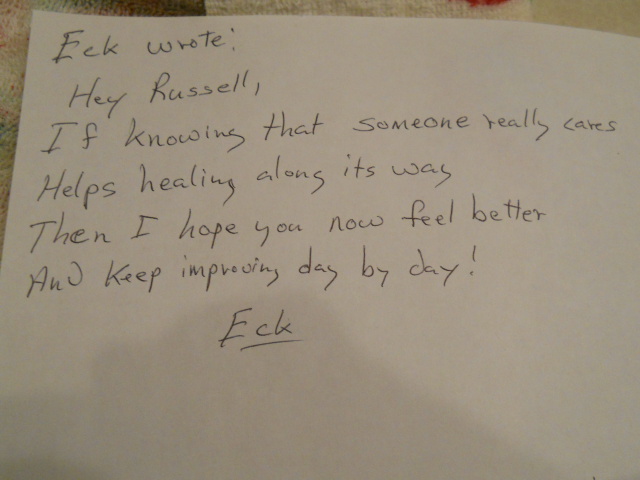 Eck wrote:
Hey Russell,
If knowing that someone really cares
Helps healing along its way
Then I hope you now feel better
And keep improving day by day!
Eck